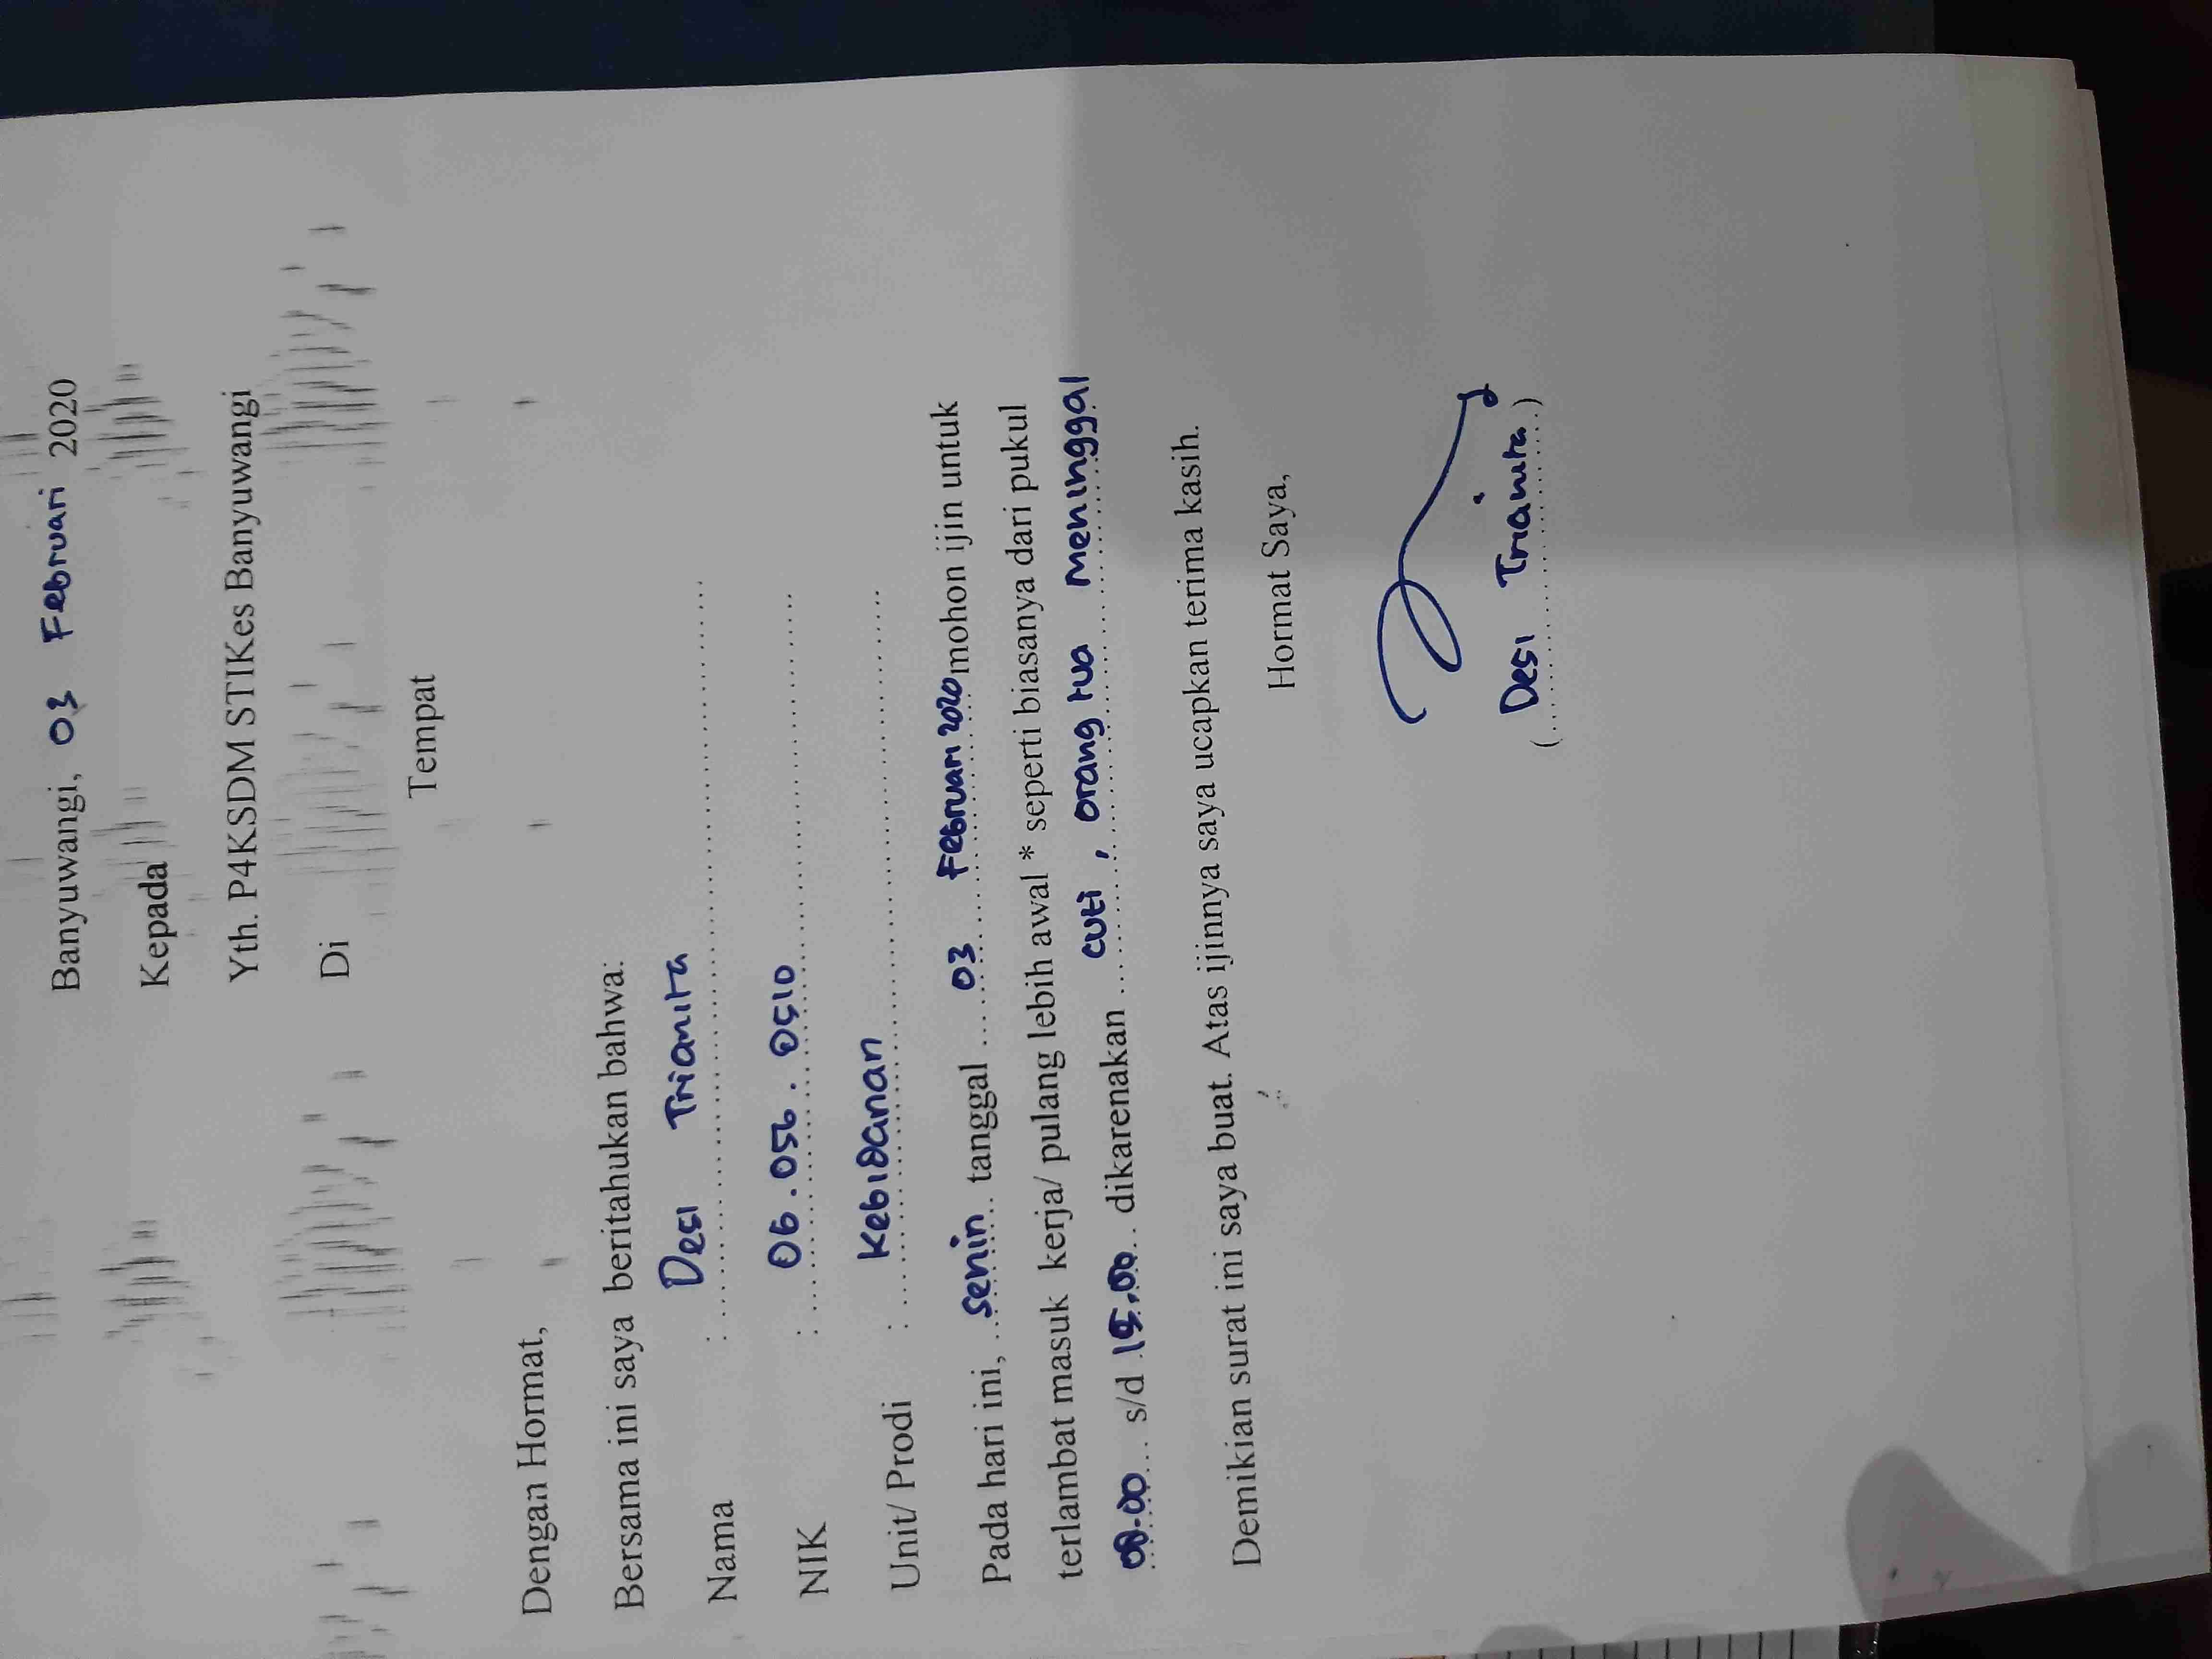 Banyuwangi, 03 Februari 2020
Kepada
Yth. P4KSDM STIKes Banyuwangi
Di
Tempat
Dengan Hormat,
Bersama ini saya beritahukan bahwa:
Nama : Desi Trianita
NIK : 06.056.0510
Unit/ Prodi : Kebidanan
Pada hari ini, senin tanggal 03 Februari 2020 mohon ijin untuk
terlambat masuk kerja/ pulang lebih awal * seperti biasanya dari pukul
08.00 s/d 15.00 dikarenakan cuti, orang tua meninggal
Demikian surat ini saya buat. Atas ijinnya saya ucapkan terima kasih.
Hormat Saya,
(Desi Trianita)